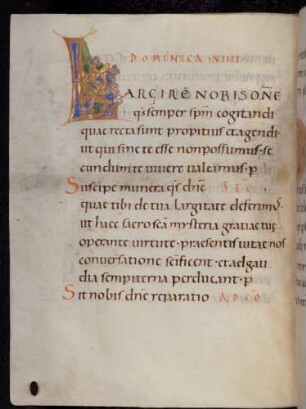 DOMINICA · VIIII
LARGIRE NOBIS DÑE
qs semper spm cogitandi
quae recta sunt propitius et agendi
ut qui sine te esse non possumus · se
cundum te vivere valeamus · p
Suscipe munera qs dñe SEC
quae tibi de tua largitate deferimus
ut haec sacrosca mysteria gratiae tuae
operante virtute · praesentis vitae nos
conversatione scificent · et ad gau
dia sempiterna perducant · p
Sit nobis dñe reparatio AD CÕ